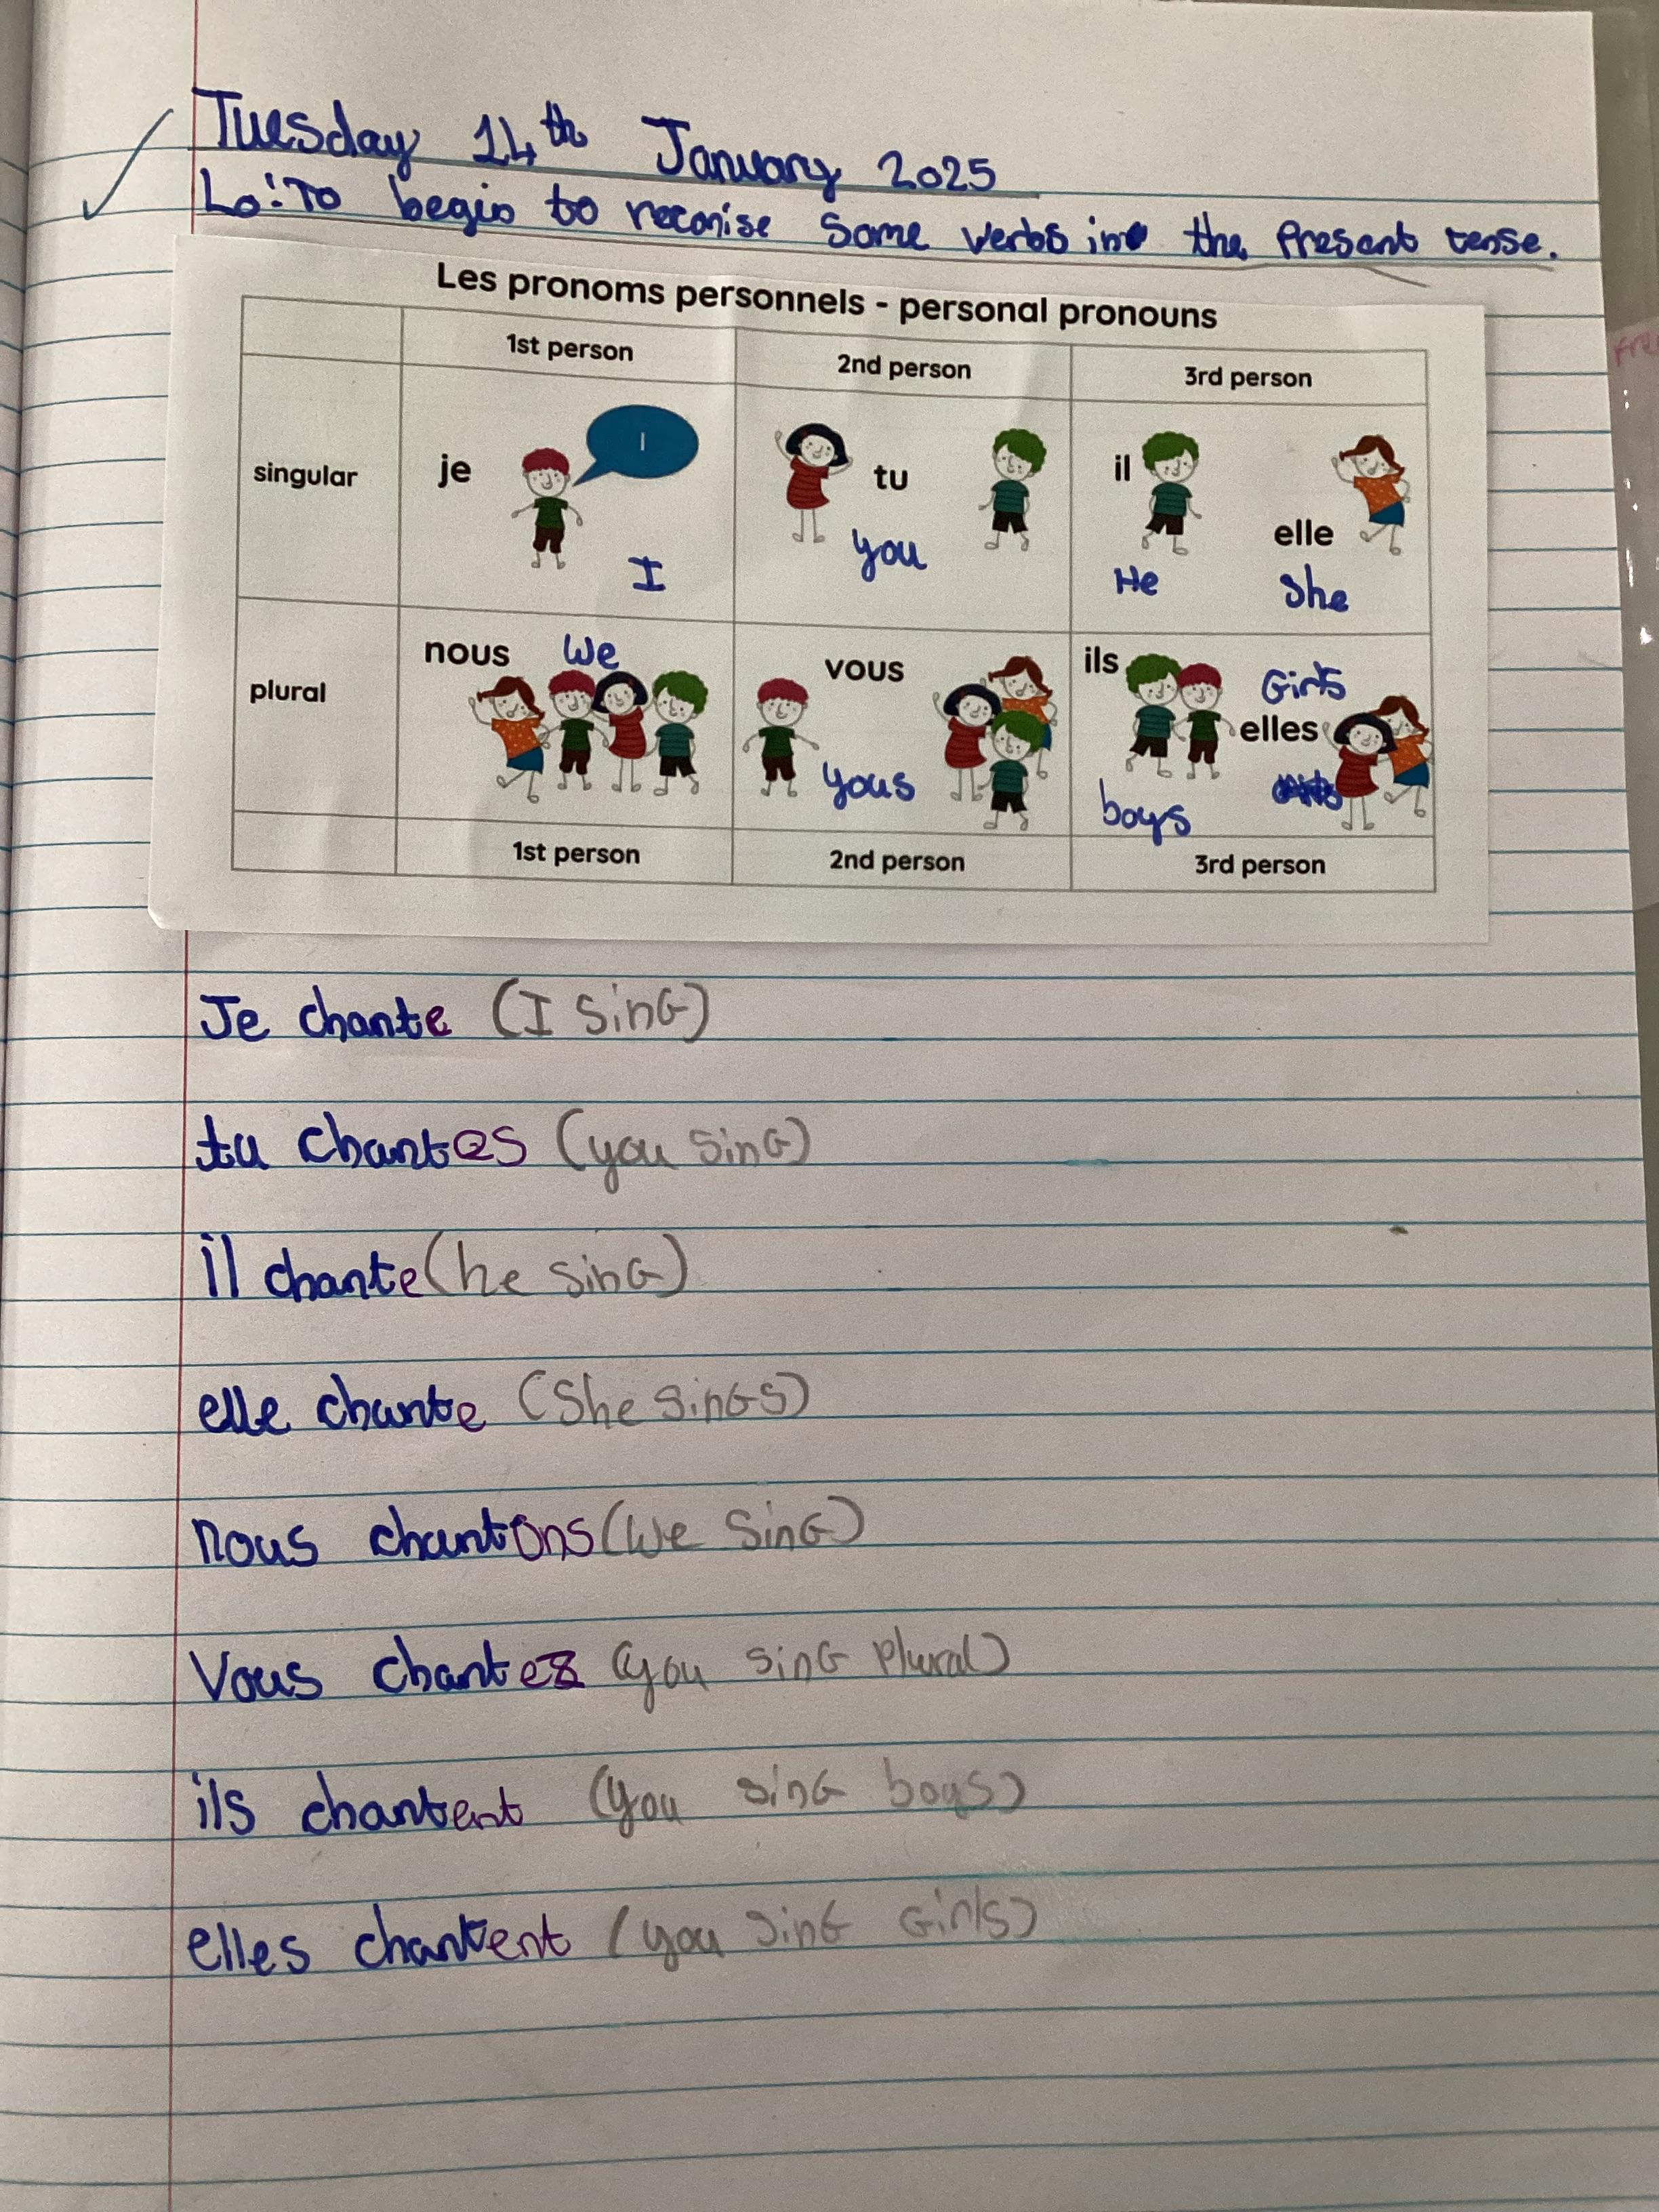 Tuesday 14th January 2025
Lo: To begin to reconise some verbs in the present tense.
Les pronoms personnels - personal pronouns
1st person 2nd person 3rd person
singular je I I tu you il He elle She
plural nous We vous yous ils boys Girls elles
1st person 2nd person 3rd person
Je chante (I sinG)
tu chantes (you sinG)
il chante (he sinG)
elle chante (She sinGs)
nous chantons (We SinG)
Vous chantez (you sinG plural)
ils chantent (you sinG boys)
elles chantent (you sinG Girls)